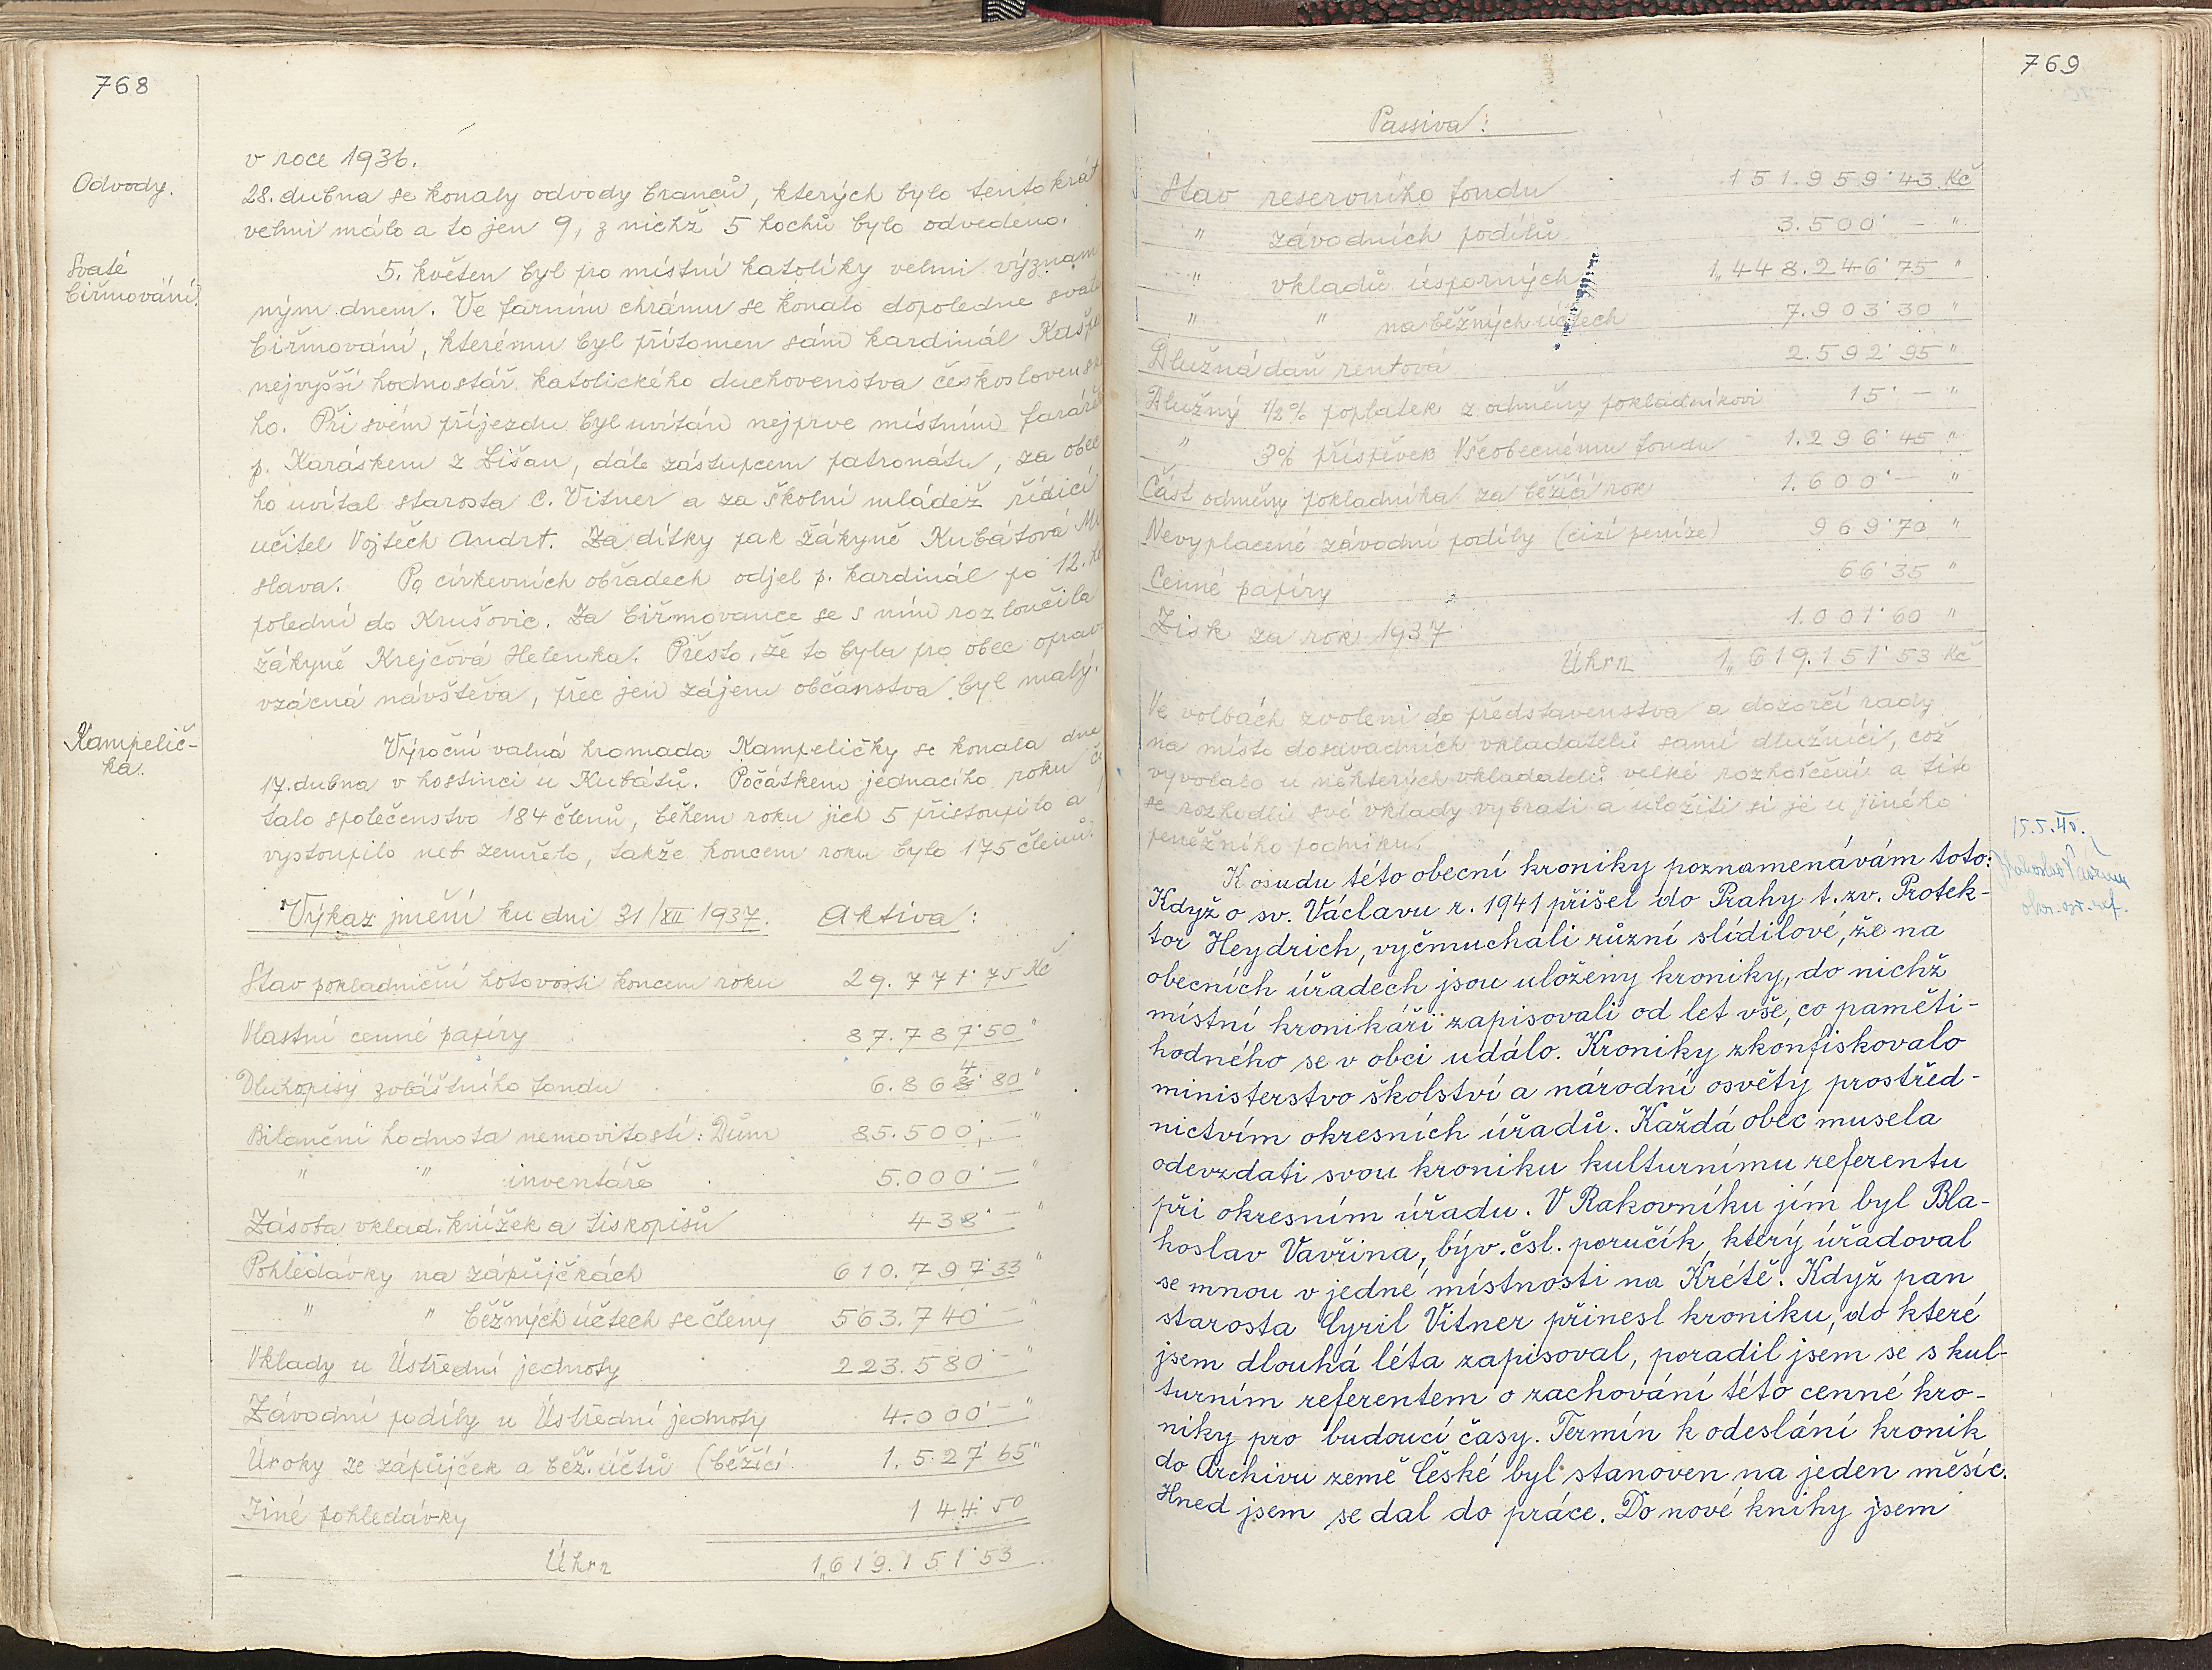 768
v roce 1936.
Odvody.
28. dubna se konaly odvody branců, kterých bylo tentokrát
velmi málo a to jen 9, z nichž 5 hochů bylo odvedeno.
Svaté
biřmování.
5. květen byl pro místní katolíky velmi význam
ným dnem. Ve farním chrámu se konalo dopoledne svaté
biřmování, kterému byl přítomen sám kardinál Kašpa
nejvyšší hodnostář katolického duchovenstva československé
ho. Při svém příjezdu byl uvítán nejprve místním farářem
p. Karáskem z Lišan, dále zástupcem patronátu, za obec
ho uvítal starosta C. Vitner a za školní mládež řídící
učitel Vojtěch Andrt. Za dítky pak žákyně Kubátová Mi
slava. Po církevních obřadech odjel p. kardinál po 12. h
polední do Krušovic. Za biřmovance se s ním rozloučila
žákyně Krejčová Helenka. Přesto, že to byla pro obec oprav
vzácná návštěva, přec jen zájem občanstva byl malý.
Kampelič-
ka.
Výroční valná hromada Kampeličky se konala dne
17. dubna v hostinci u Kubátů. Počátkem jednacího roku č
talo společenstvo 184 členů, během roku jich 5 přistoupilo a
vystoupilo neb zemřelo, takže koncem roku bylo 175 členů.
Výkaz jmění ku dni 31/XII 1937. Aktiva:
Stav pokladniční hotovosti koncem roku 29.771.75 Kč
Vlastní cenné papíry 87.787.50 "
Dluhopisy zvláštního fondu 6.864.80 "
Bilanční hodnota nemovitostí: Dům 85.500.— "
" " inventáře 5.000.— "
Zásoba vklad. knížek a tiskopisů 438.— "
Pohledávky na zápůjčkách 610.797.33 "
" " běžných účtech se členy 563.740.— "
Vklady u Ústřední jednoty 223.580.— "
Závodní podíly u Ústřední jednoty 4.000.— "
Úroky ze zápůjček a běž. účtů (běžící 1.527.65 "
Jiné pohledávky 144.50
Úhrn 1„619.151.53
769
Passiva:
Stav reservního fondu 151.959.43 Kč
" závodních podílů 3.500.— "
" vkladů úsporných 1„448.246.75 "
" " na běžných účtech 7.903.30 "
Dlužná daň rentová 2.592.95 "
Dlužný 1/2% poplatek z odměny pokladníkovi 15.— "
" 3% příspěvek Všeobecnému fondu 1.296.45 "
Část odměny pokladníka za běžící rok 1.600.— "
Nevyplacené závodní podíly (cizí peníze) 969.70 "
Cenné papíry 66.35 "
Zisk za rok 1937. 1.001.60 "
Úhrn 1„619.151.53 Kč
Ve volbách zvoleni do představenstva a dozorčí rady
na místo dosavadních vkladatelů samí dlužníci, což
vyvolalo u některých vkladatelů velké rozhořčení a tito
se rozhodli své vklady vybrati a uložiti si je u jiného
peněžního podniku.
15.5.40.
okr. osv. ref.
K osudu této obecní kroniky poznamenávám toto:
Když o sv. Václavu r. 1941 přišel do Prahy t. zv. Protek-
tor Heydrich, vyčmuchali různí slídilové, že na
obecních úřadech jsou uloženy kroniky, do nichž
místní kronikáři zapisovali od let vše, co paměti-
hodného se v obci událo. Kroniky zkonfiskovalo
ministerstvo školství a národní osvěty prostřed-
nictvím okresních úřadů. Každá obec musela
odevzdati svou kroniku kulturnímu referentu
při okresním úřadu. V Rakovníku jím byl Bla-
hoslav Vavřina, býv. čsl. poručík, který úřadoval
se mnou v jedné místnosti na Krétě. Když pan
starosta Cyril Vitner přinesl kroniku, do které
jsem dlouhá léta zapisoval, poradil jsem se s kul-
turním referentem o zachování této cenné kro-
niky pro budoucí časy. Termín k odeslání kronik
do Archivu země České byl stanoven na jeden měsíc.
Hned jsem se dal do práce. Do nové knihy jsem